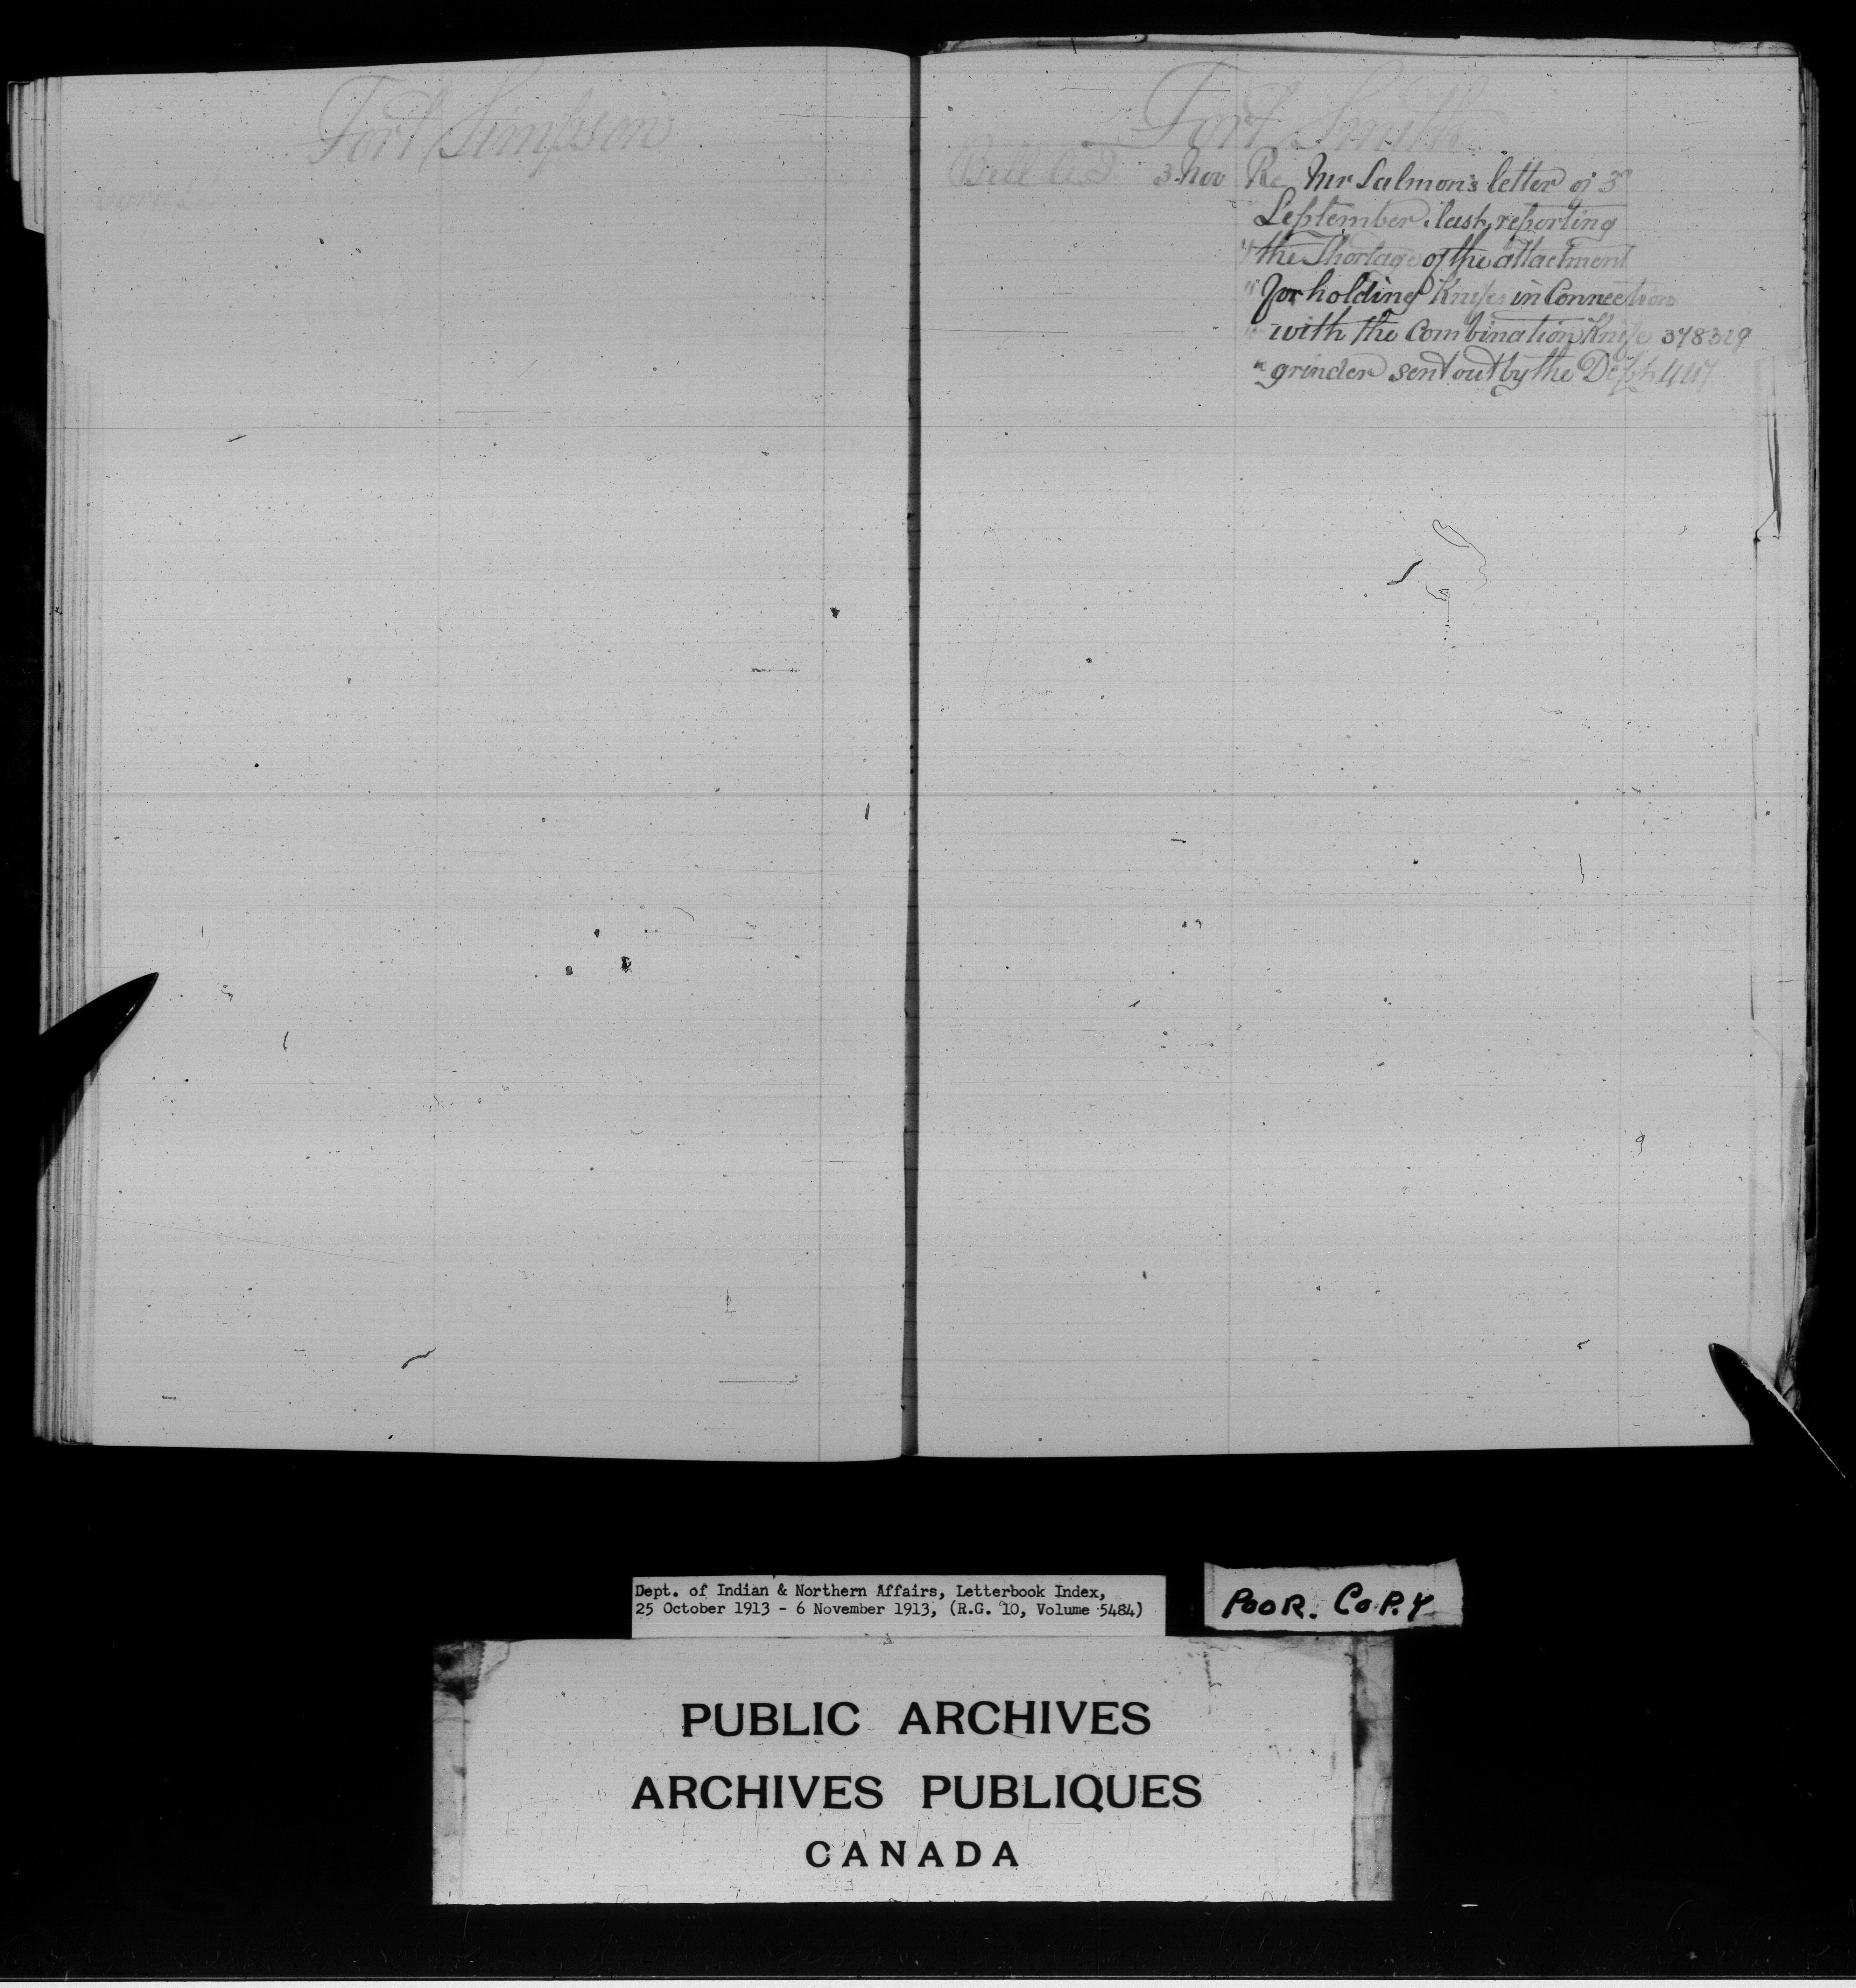 Fort Simpson
Fort Smith
Bell A.J. 3 Nov Re Mr Salmon's letter of 3rd
September last, reporting
" the Shortage of the attachment
" for holding Knifes in Connection
" with the Combination Knife 378329
" grinder sent out by the Dept. 447
Dept. of Indian & Northern Affairs, Letterbook Index,
25 October 1913 - 6 November 1913, (R.G. 10, Volume 5484)
POOR. COPY
PUBLIC ARCHIVES
ARCHIVES PUBLIQUES
CANADA